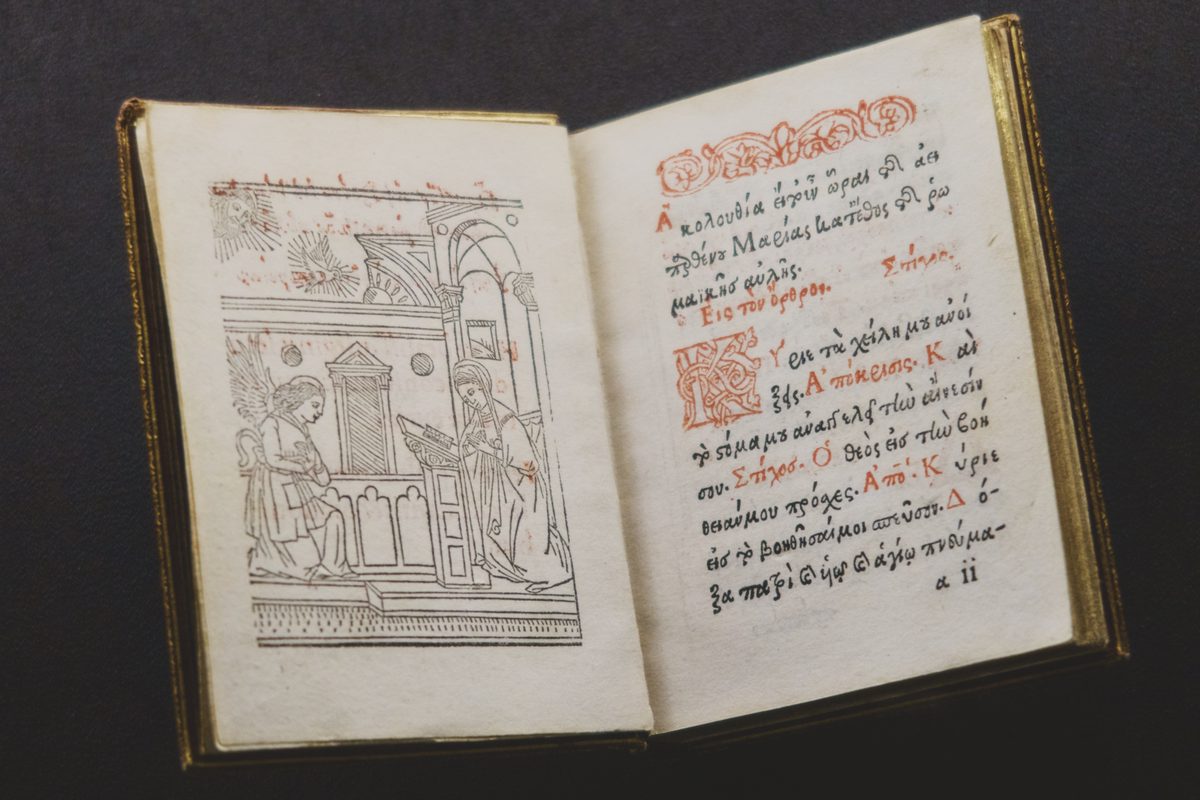 Ἀκολουθία ὧραι τῆς ἀει
παρθένου Μαρίας κατ' ἔθος τῆς ῥω
μαϊκῆς αὐλῆς. Στίχος.
Εἰς τὸν ὄρθρον.
Κύριε τὰ χείλη μου ἀνοί
ξεις. Ἀπόκρισις. Καὶ
τὸ στόμα μου ἀναγγελεῖ τὴν αἴνεσίν
σου. Στίχος. Ὁ θεὸς εἰς τὴν βοή
θειάν μου πρόσχες. Ἀπό. Κύριε
εἰς τὸ βοηθῆσαί μοι σπεῦσον. Δό-
ξα πατρὶ καὶ υἱῷ καὶ ἁγίῳ πνεύμα-
a ii